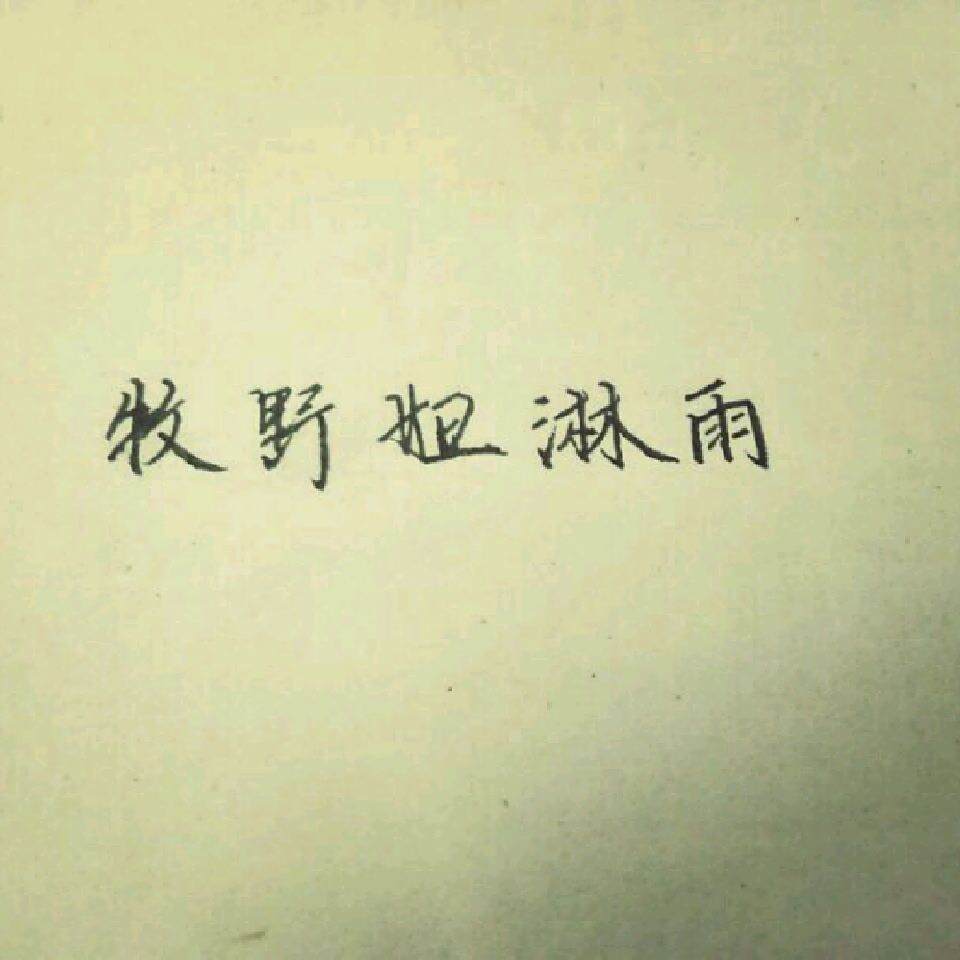 牧野妲淋雨